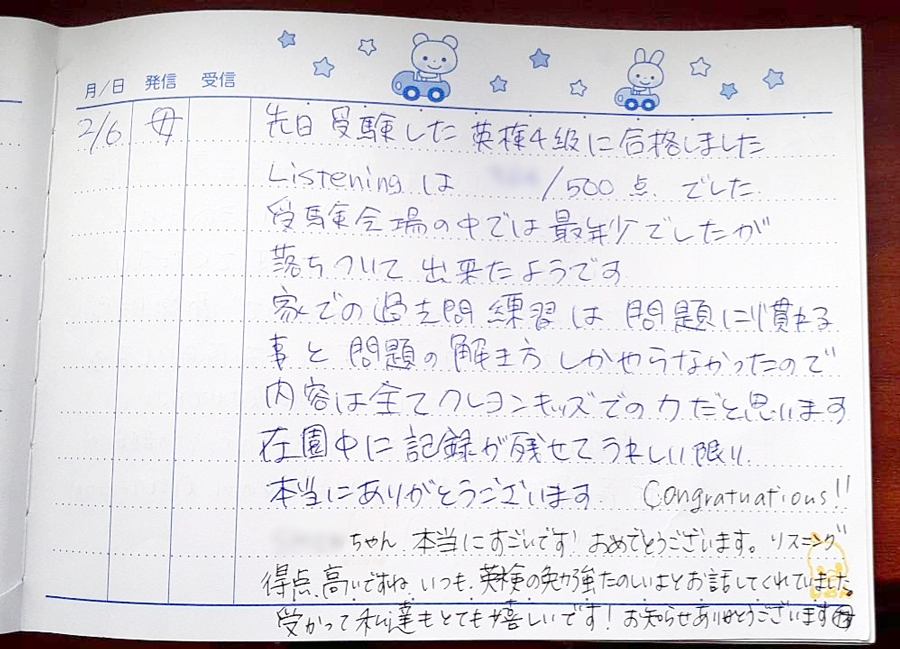 月/日 発信 受信
2/6 母 先日 受験した 英検4級に合格しました
Listening は /500 点 でした
受験会場の中では最年少でしたが
落ちついて 出来たようです
家での過去問練習は 問題に慣れる
事と 問題の解き方 しかやらなかったので
内容は全てクレヨンキッズでの力だと思います
在園中に記録が残せてうれしい限り
本当にありがとうございます Congratuations!!
ちゃん 本当にすごいです! おめでとうございます。リスニング
得点、高いですね。いつも、英検の勉強たのしいよとお話してくれていました。
受かって私達もとても嬉しいです! お知らせありがとうございます